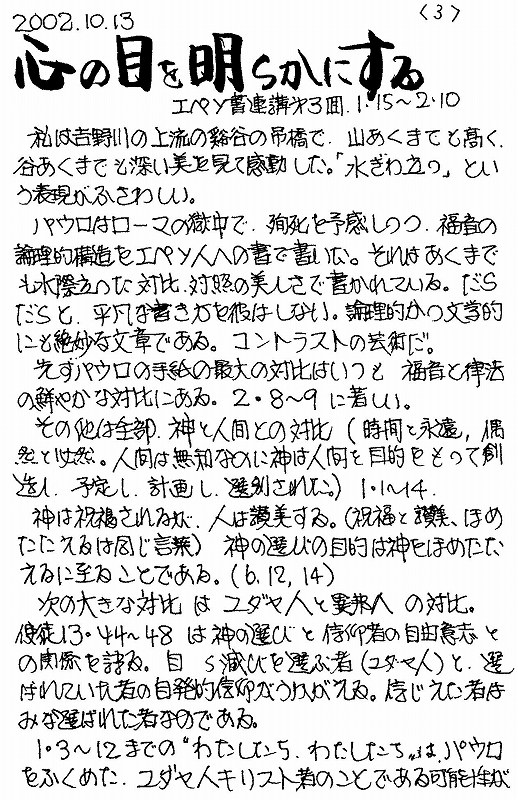 2002.10.13 〈3〉
心の目を明らかにする
エペソ書連講第3回.1・15～2・10
私は吉野川の上流の谿谷の吊橋で、山あくまでも高く、
谷あくまでも深い美を見て感動した。「水ぎわ立つ」とい
う表現がふさわしい。
パウロはローマの獄中で、殉死を予感しつつ、福音の
論理的構造をエペソ人への書で書いた。それはあくまで
も水際立った対比、対照の美しさで書かれている。だら
だらと、平凡な書き方を彼はしない。論理的かつ文学的
にも絶妙な文章である。コントラストの芸術だ。
先ずパウロの手紙の最大の対比はいつも 福音と律法
の鮮やかな対比にある。2・8～9 に著しい。
その他は全部、神と人間との対比(時間と永遠，偶
然と必然。人間は無知なのに神は人間を目的をもって創
造し、予定し、計画し、選別された。) 1・1～14.
神は祝福されるが、人は讃美する。(祝福と讃美、ほめ
たたえるは同じ言葉) 神の選びの目的は神をほめたた
えるに至ることである。(6，12，14)
次の大きな対比 は ユダヤ人と異来人 の対比。
使徒13・44～48 は神の選びと信仰者の自由意志と
の関係を語る。自 ら滅びを選ぶ者(ユダヤ人)と、選
ばれていた者の自発的信仰がうかがえる。信じえた者は
みな選ばれた者なのである。
1・3～12までの“わたしたち、わたしたち”は、パウロ
をふくめた、ユダヤ人キリスト者のことである可能性が